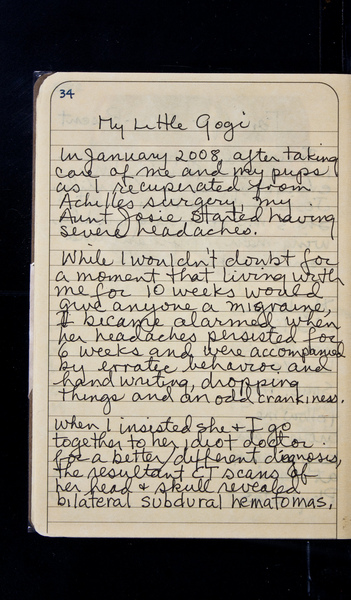 34
My Little Gogi
In January 2008, after taking
care of me and my pups
as I recuperated from
Achilles surgery, my
Aunt Josie started having
severe headaches.
While I wouldn't doubt for
a moment that living with
me for 10 weeks would
give anyone a migraine,
I became alarmed when
her headaches persisted for
6 weeks and were accompanied
by erratic behavior and
handwriting, dropping
things and an odd crankiness.
When I insisted she & I go
together to her idiot doctor
for a better/different diagnosis,
the resultant CT scans of
her head & skull revealed
bilateral subdural hematomas,